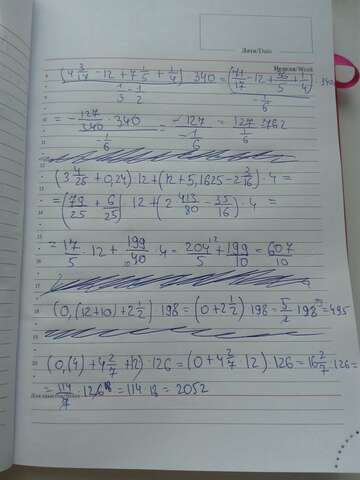 Дата/Date
Неделя/Week
(4 3/17 - 12 + 7 1/5 + 1/4) 340 = (71/17 - 12 + 36/5 + 1/4) 340
1/3 - 1/2
- 1/6
= - 127/340 · 340 = - 127 = 127 · 762
- 1/6
- 1/6
1/6
(3 4/25 + 0,24) 12 + (12 + 5,1625 - 2 3/16) · 4 =
= (79/25 + 6/25) 12 + (2 413/80 - 35/16) · 4 =
= 17/5 · 12 + 199/40 · 4 = 204/5 + 199/10 = 607/10
(0,(12+10) + 2 1/2) 198 = (0 + 2 1/2) 198 = 5/2 198 = 495
(0,(4) + 4 2/7 + 12) · 126 = (0 + 4 2/7 12) 126 = 16 2/7 · 126 =
= 114/7 · 126 18 = 114 · 18 = 2052